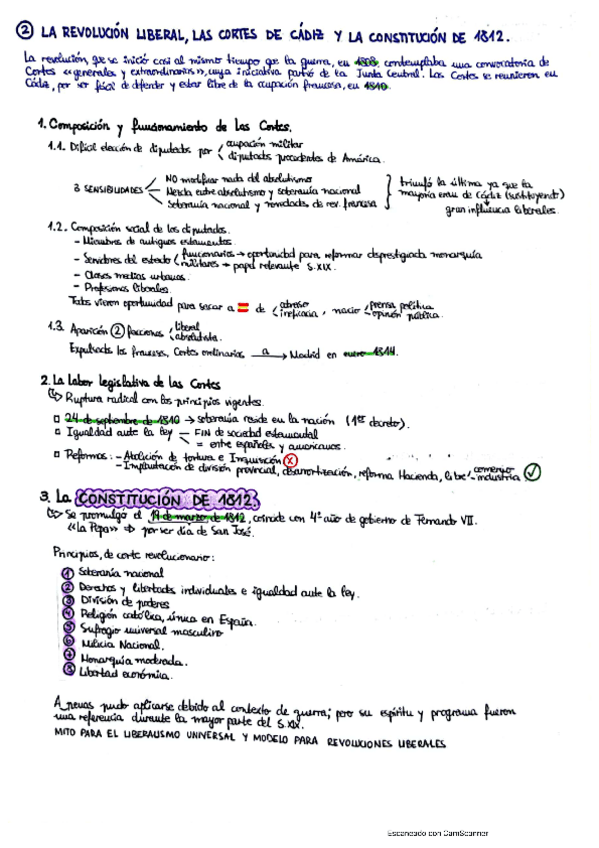 ② LA REVOLUCIÓN LIBERAL, LAS CORTES DE CÁDIZ Y LA CONSTITUCIÓN DE 1812.
La revolución, que se inició casi al mismo tiempo que la guerra, en 1808, contemplaba una convocatoria de
Cortes «generales y extraordinarias», cuya iniciativa partió de la Junta Central. Las Cortes se reunieron en
Cádiz, por ser fácil de defender y estar libre de la ocupación francesa, en 1810.
1. Composición y funcionamiento de las Cortes.
1.1. Difícil elección de diputados por ocupación militar
diputados procedentes de América.
3 SENSIBILIDADES
NO modificar nada del absolutismo
Mezcla entre absolutismo y soberanía nacional
Soberanía nacional y novedades de rev. francesa
triunfó la última ya que la
mayoría eran de Cádiz (sustituyendo)
gran influencia liberales.
1.2. Composición social de los diputados.
- Miembros de antiguos estamentos.
- Servidores del estado funcionarios → oportunidad para reformar desprestigiada monarquía
militares → papel relevante S.XIX.
- Clases medias urbanas.
- Profesiones liberales.
Todos vieron oportunidad para sacar a de atraso
ineficacia, nacio prensa política
opinión pública.
1.3. Aparición ② facciones liberal
absolutista.
Expulsados los franceses, Cortes ordinarias a → Madrid en enero 1814.
2. La labor legislativa de las Cortes
↳ Ruptura radical con los principios vigentes.
24 de septiembre de 1810 → soberanía reside en la nación (1er decreto).
Igualdad ante la ley FIN de sociedad estamental
= entre españoles y americanos.
Reformas: - Abolición de tortura e Inquisición
- Implantación de división provincial, desamortización, reforma Hacienda, libe comercio
industria
3. La CONSTITUCIÓN DE 1812
↳ Se promulgó el 19 de marzo de 1812, coincide con 4º año de gobierno de Fernando VII.
«La Pepa» ⇒ por ser día de San José.
Principios, de corte revolucionario:
① Soberanía nacional
② Derechos y libertades individuales e igualdad ante la ley.
③ División de poderes
④ Religión católica, única en España.
⑤ Sufragio universal masculino
⑥ Milicia Nacional.
⑦ Monarquía moderada.
⑧ Libertad económica.
Apenas pudo aplicarse debido al contexto de guerra; pero su espíritu y programa fueron
una referencia durante la mayor parte del S.XIX.
MITO PARA EL LIBERALISMO UNIVERSAL Y MODELO PARA REVOLUCIONES LIBERALES
Escaneado con CamScanner